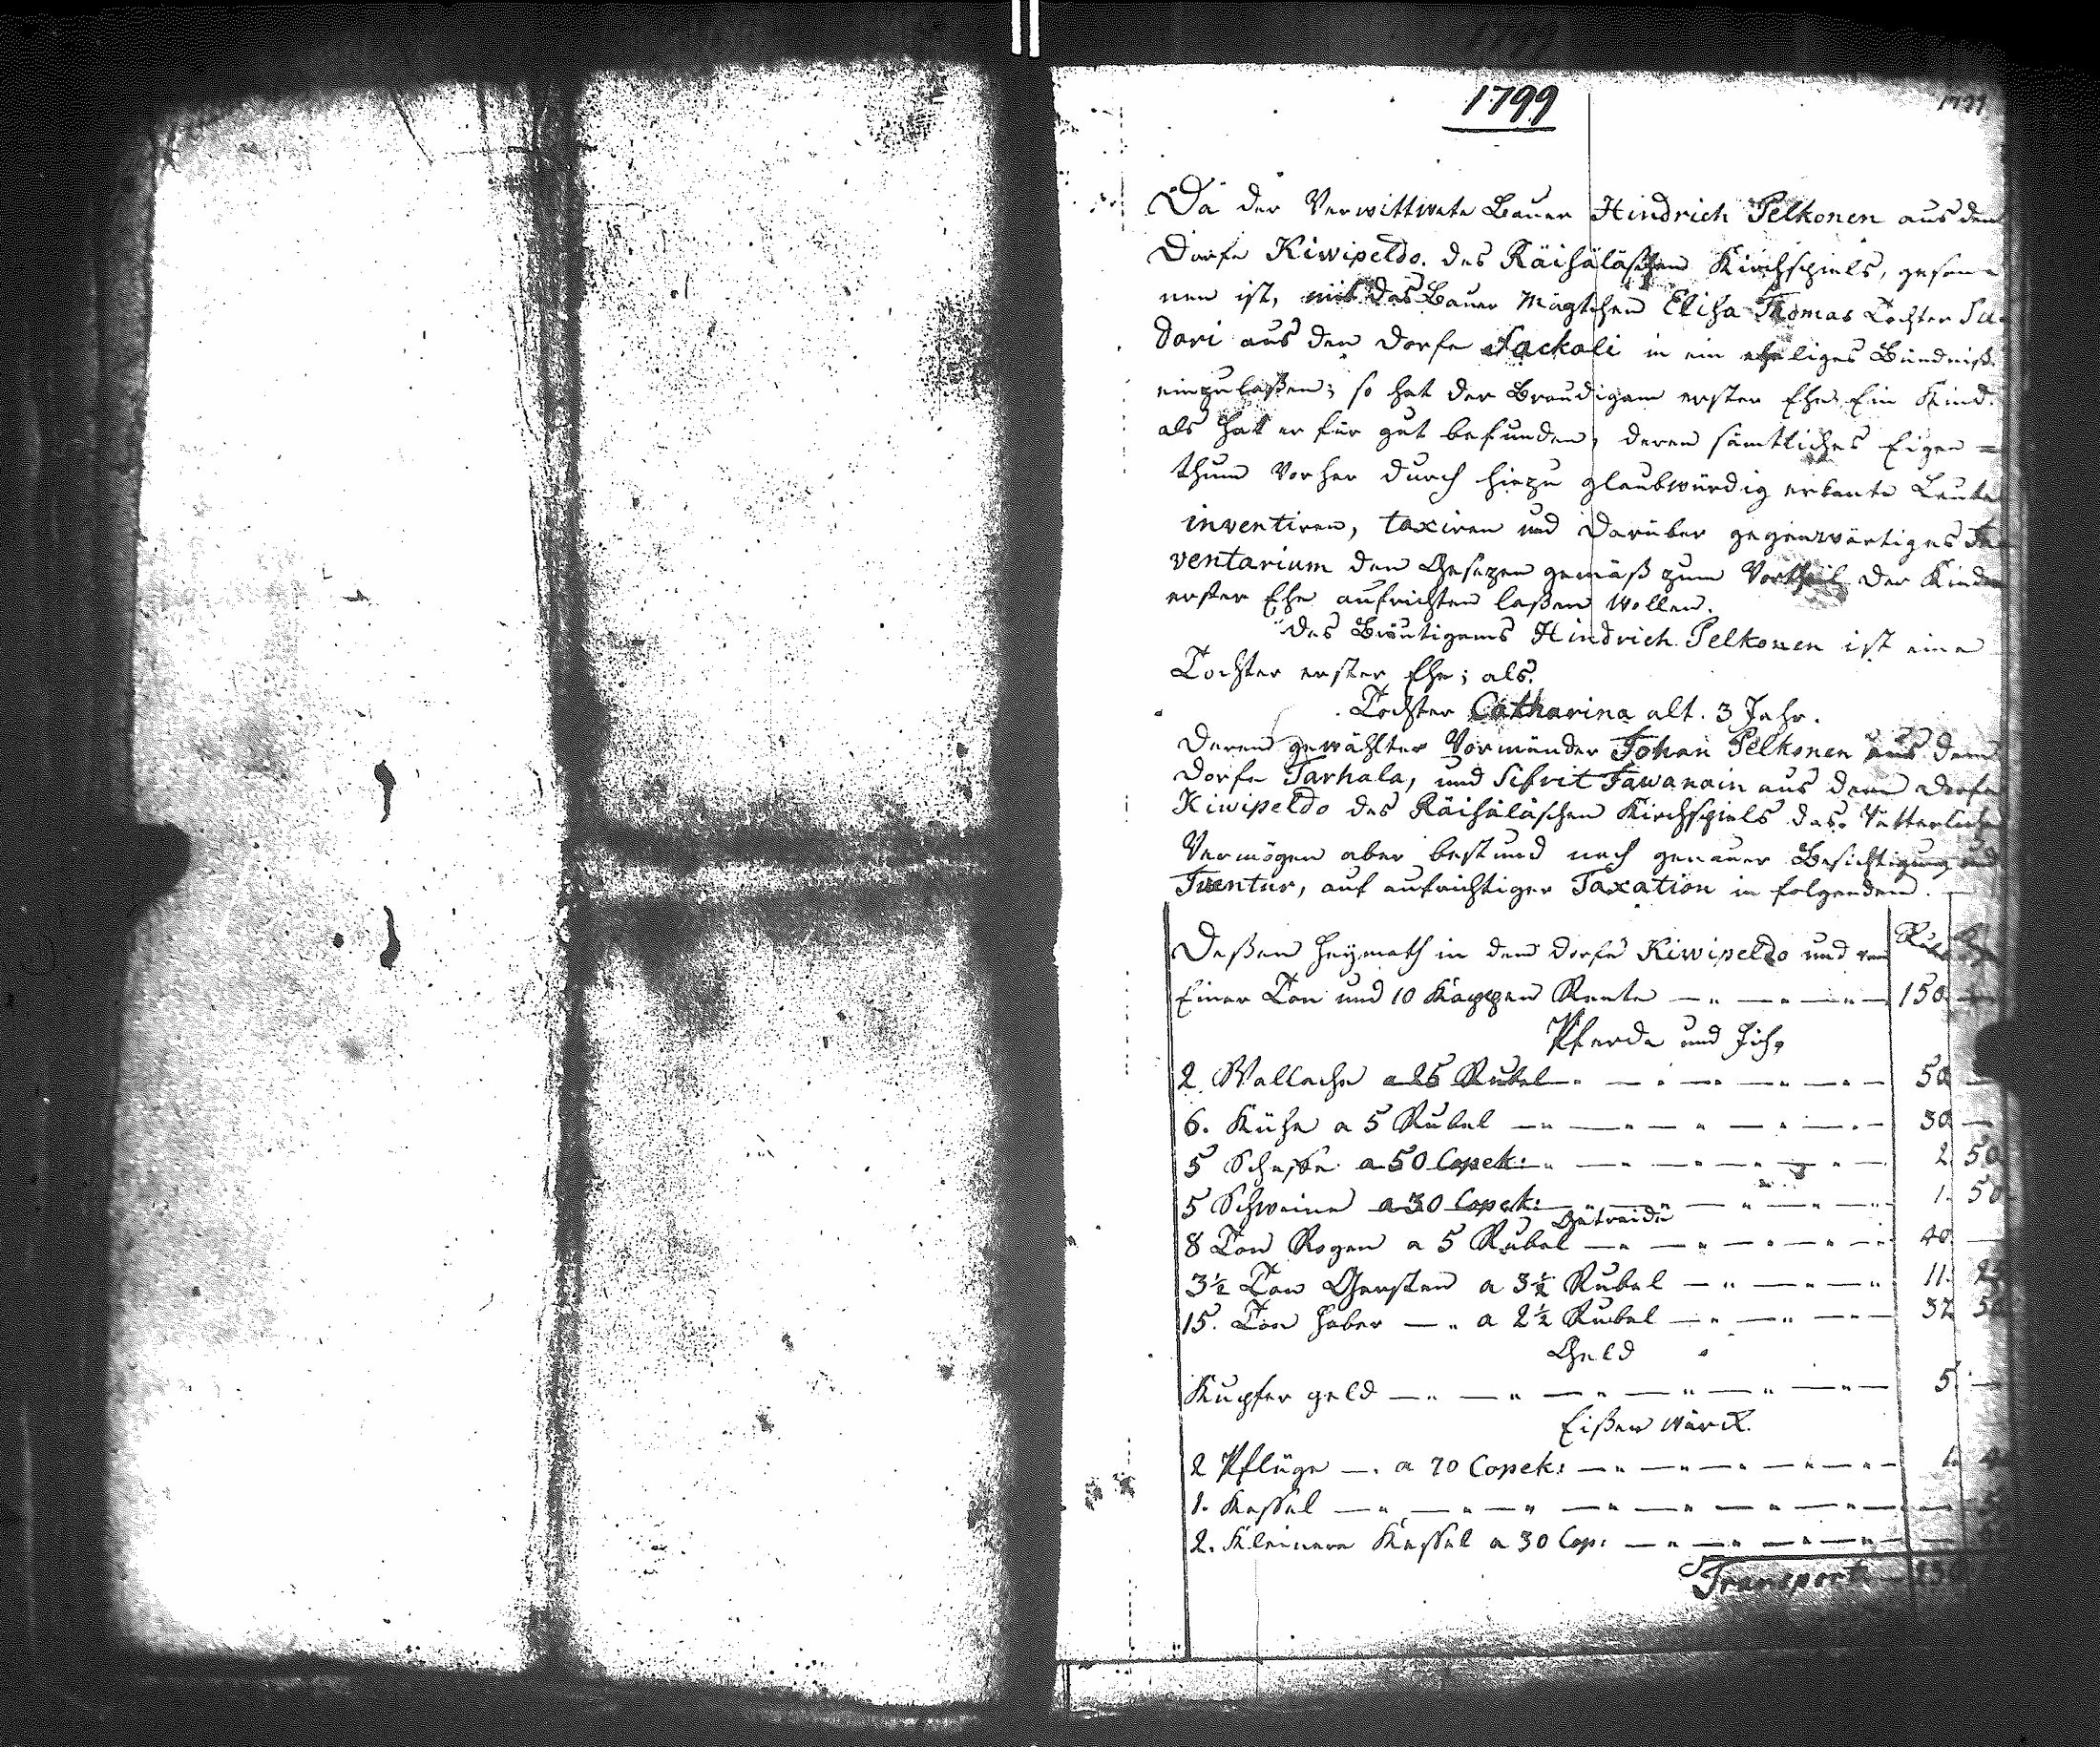 1799
Da der Verwittwete Bauer Hindrich Pelkonen aus dem
Dorfe Kiwipeldo des Räisäläschen Kirchspiels, geson-
nen ist, mit das Bauer Mägtchen Elisa Thomas Tochter Su-
dari aus den Dorfe Sackali in ein eheliges Bündniß
einzulaßen; so hat der Braudigam erster Ehe Ein Kind.
als hat er für gut befunden, deren sämtliches Eigen=
thum Vorher durch hiezu glaubwürdig erkante Leute
inventiren, taxiren und darüber gegenwärtiges In-
ventarium den Gesezen gemäß zum Vortheil der Kinder
erster Ehe aufrichten laßen wollen.
Des Bräutigams Hindrich Pelkonen ist eine
Tochter erster Ehe; als.
Tochter Catharina alt. 3 Jahr.
Deren gewählter Vormünder Johan Pelkonen aus dem
Dorfe Tarhala, und Sifrit Tawanain aus dem Dorfe
Kiwipeldo des Räisäläschen Kirchspiels das Vätterliche
Vermögen aber bestund nach genauer Besichtigung und
Inventur, auf aufrichtiger Taxation in folgenden.
Deßen Heymath in dem Dorfe Kiwipeldo und von
Einer Ton und 10 Kappen Rente 150
Pferde und Fich,
2 Wallache a 25 Rubel 50
6. Kühe a 5 Rubel 30
5 Schaffe a 50 Copek: 2 50
5 Schweine a 30 Copek: 1. 50
Getreide
8 Ton Rogen a 5 Rubel 40
3½ Ton Gersten a 3½ Rubel 11.
15. Ton Haber a 2½ Rubel 37 50
Geld
Kupfer geld 5
Eißen wärck.
2 Pflüge a 70 Copek: 1.
1. Kessel
2. Kleinere Kessel a 30 Cop:
Transport